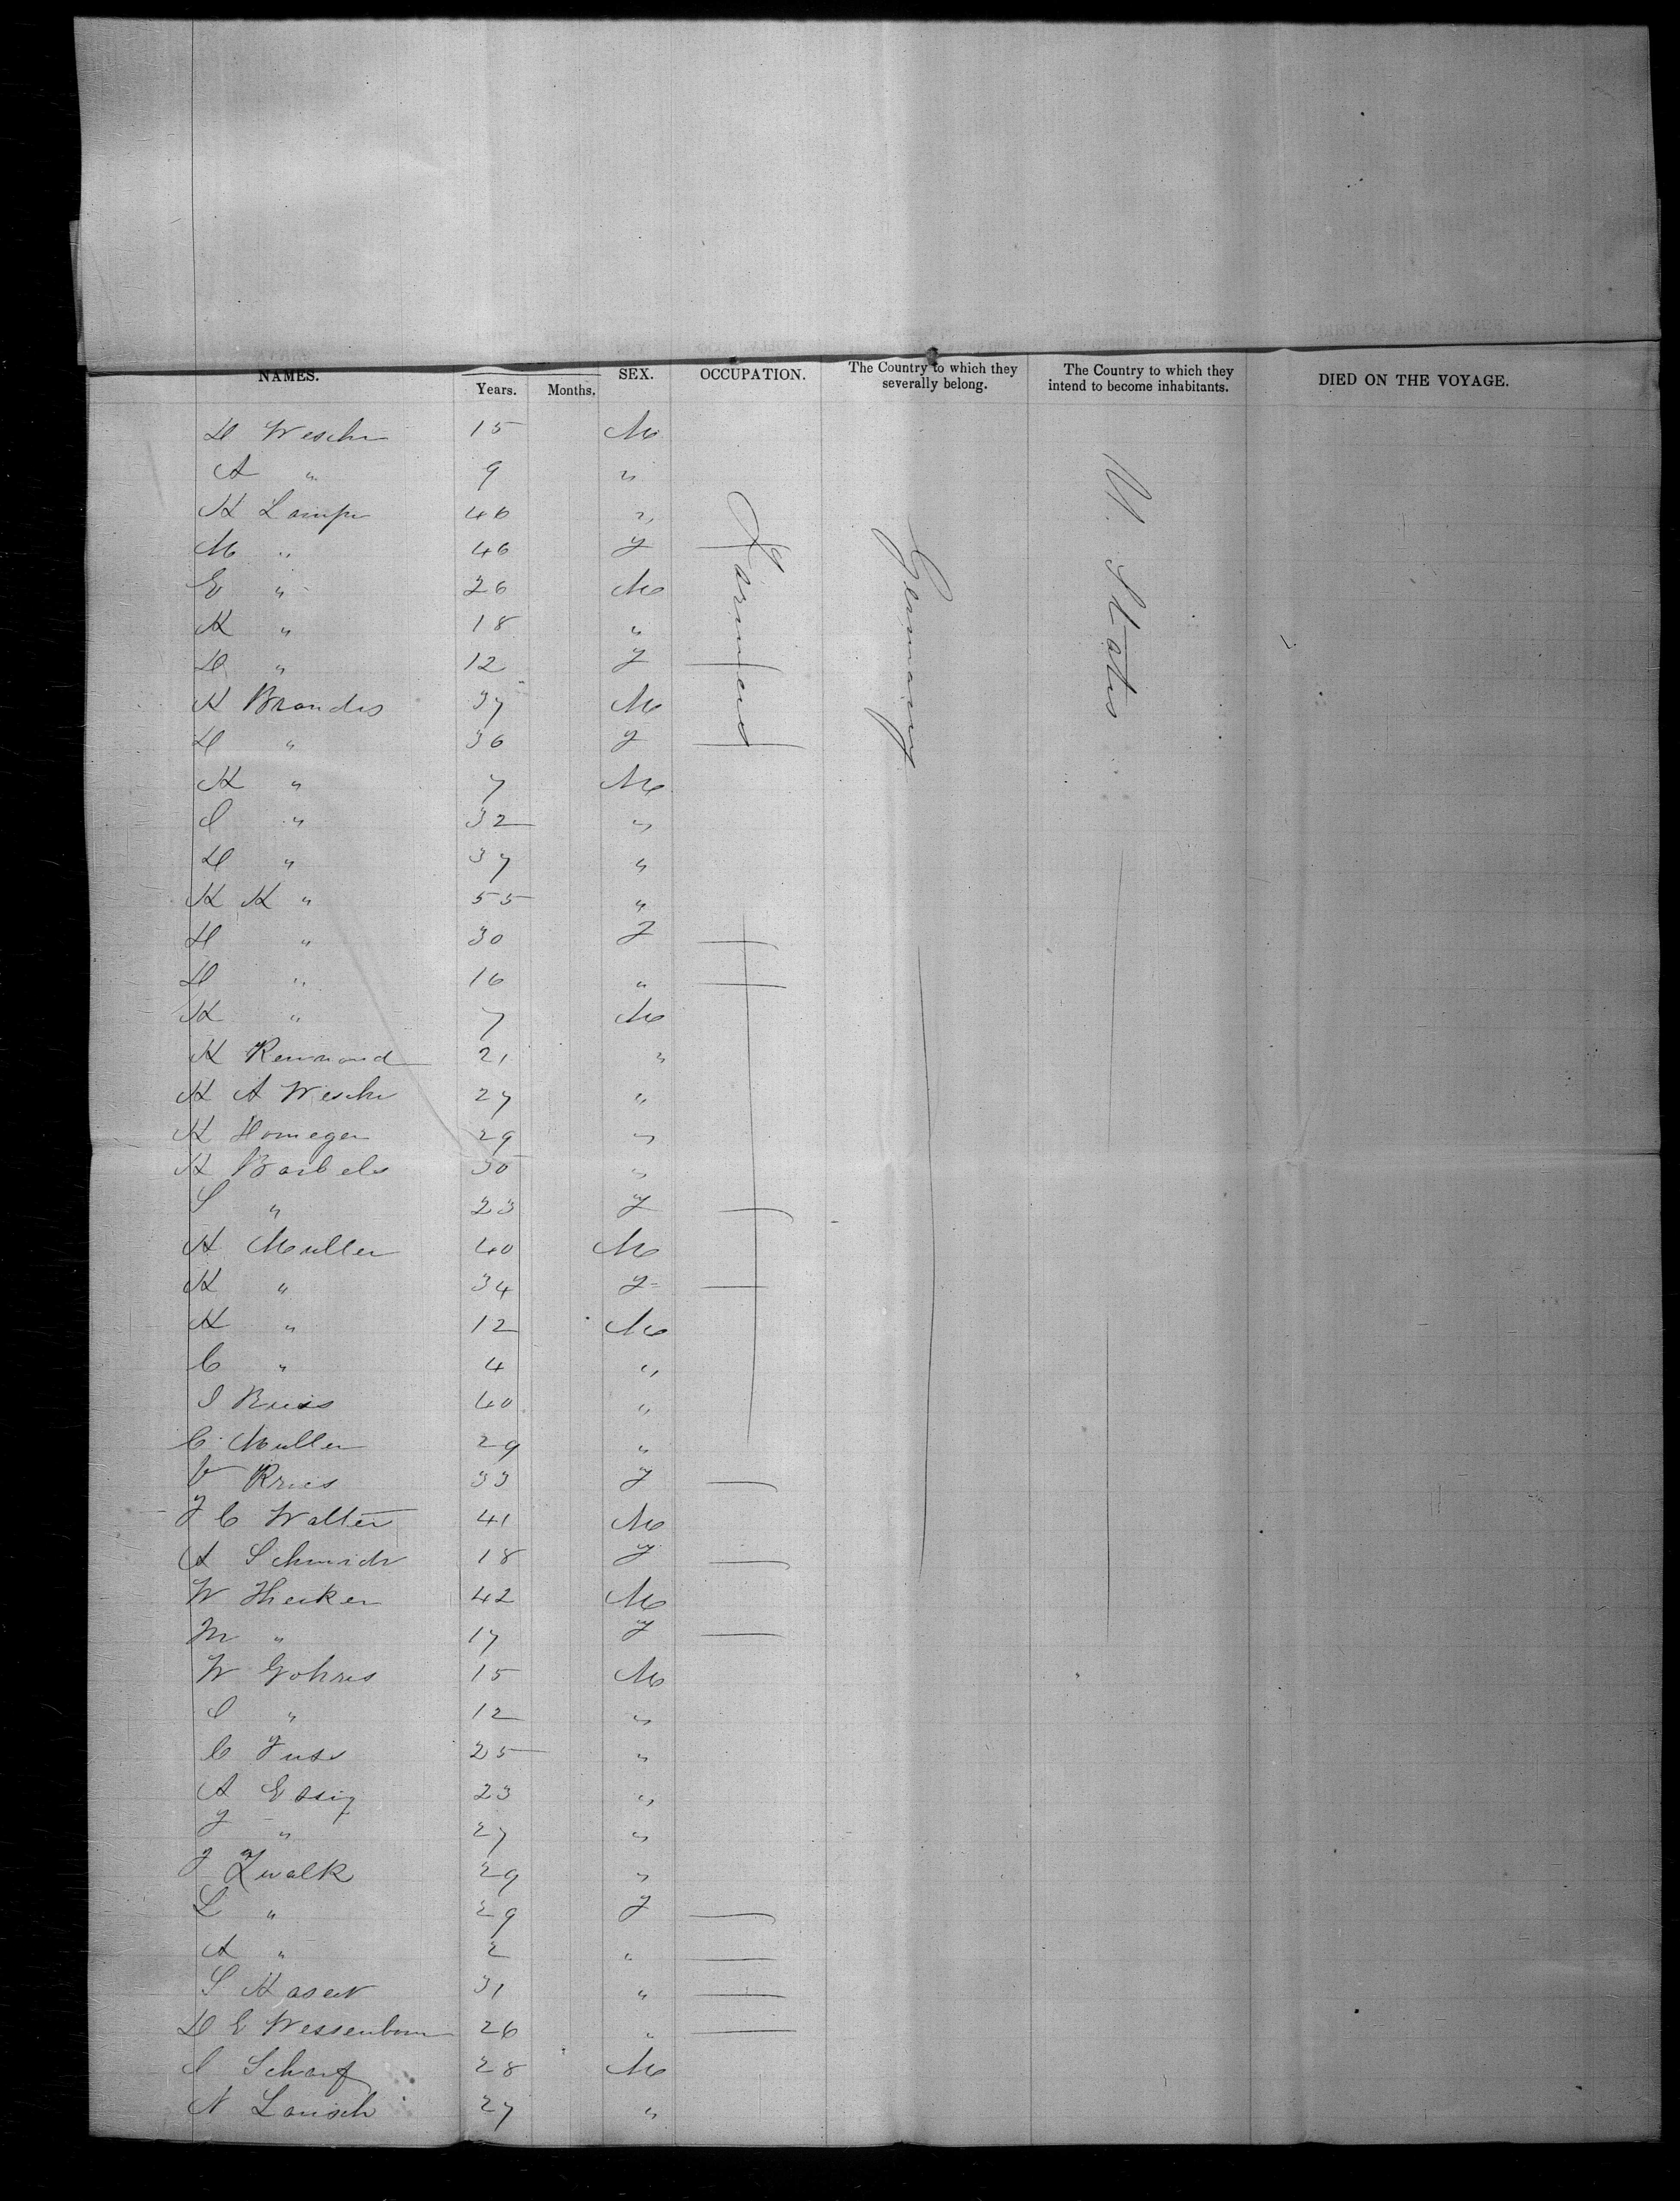 NAMES. Years. Months. SEX. OCCUPATION. The Country to which they severally belong. The Country to which they intend to become inhabitants. DIED ON THE VOYAGE.
D Wesche 15 M
A " 9 "
H Lampe 46 "
M " 46 F
E " 26 M
H " 18 "
D " 12 F
H Brandes 37 M
D " 36 F
H " 7 M
I " 32 "
D " 37 "
H H " 55 "
D " 30 F
D " 16 "
H " 7 M
H 21 "
H A Wesche 27 "
H 29 "
H Barbels 30 "
S " 23 F
H Muller 40 M
H " 34 F
H " 12 M
C " 4 "
I 40 "
C Muller 29 "
V Kries 33 F
F C Walter 41 M
A Schmidt 18 F
W 42 M
M " 17 F
W Gohres 15 M
I " 12 "
C Fuss 25 "
A Essig 23 "
F " 27 "
F Zwalk 29 "
L " 29 F
A " 2 "
S 31 "
D E Wessenborn 26 "
I Scharf 28 M
N Lausch 27 "
Farmers
Germany
U. States